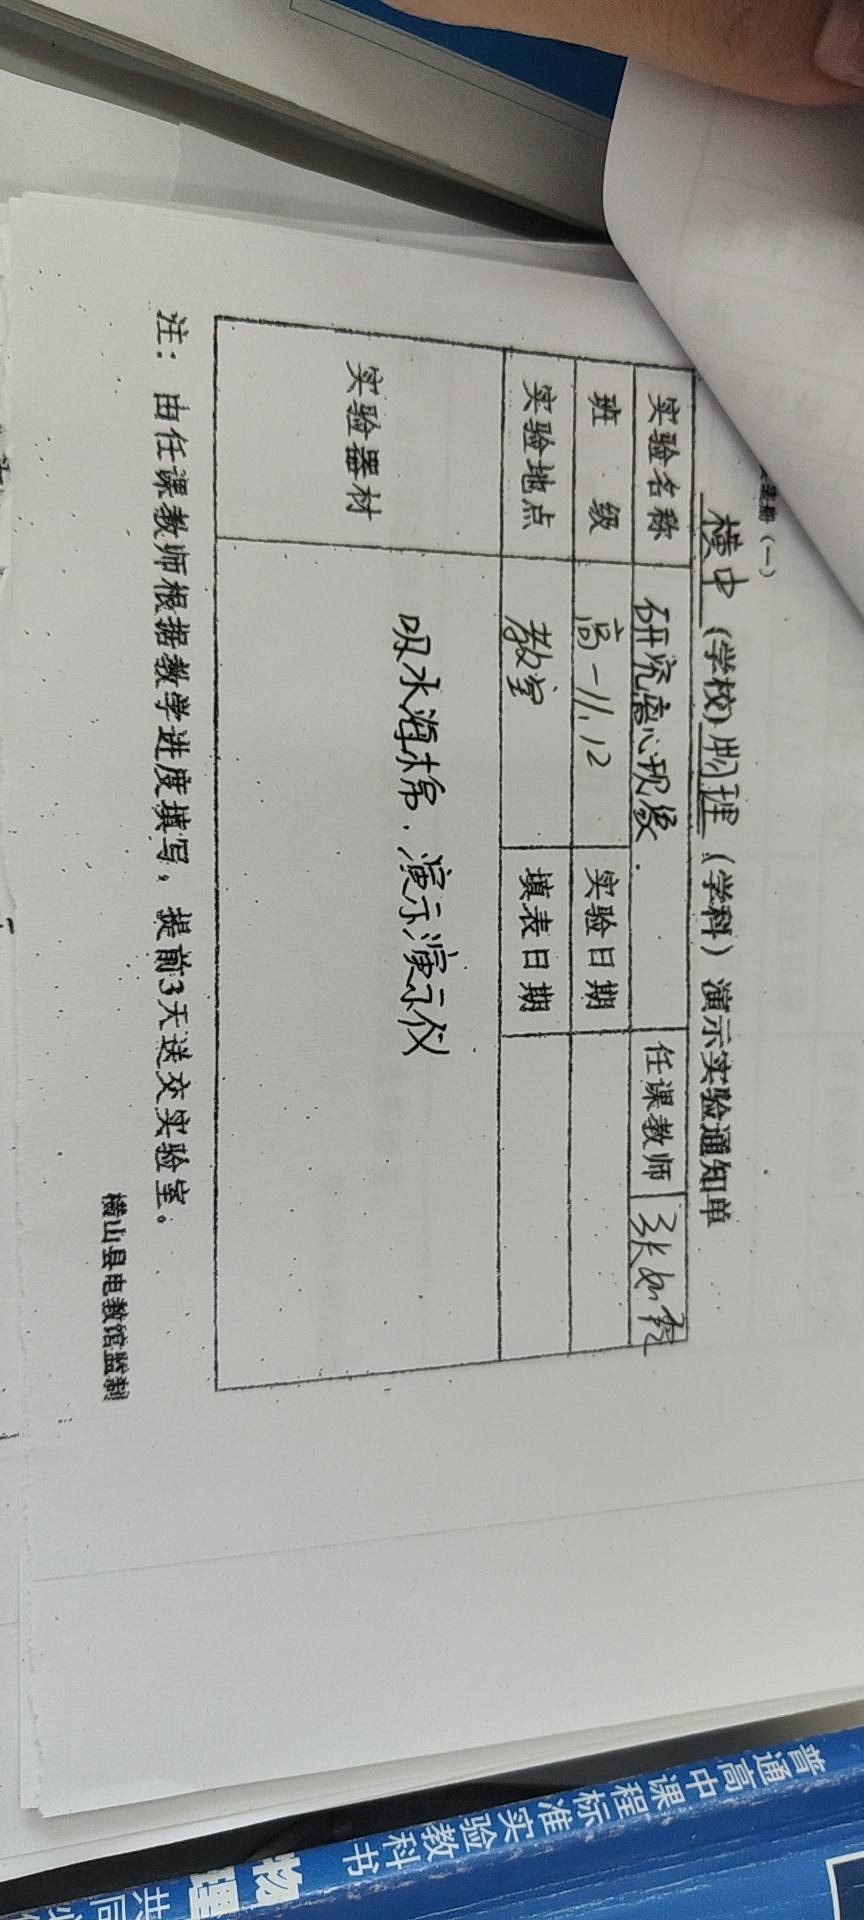 （一）
横中（学校）物理（学科）演示实验通知单
实验名称 研究离心现象. 任课教师 张如
班 级 高一11.12 实验日期
实验地点 教室 填表日期
实验器材 吸水海棉.演示演示仪
注：由任课教师根据教学进度填写，提前3天送交实验室。
横山县电教馆监制
普通高中课程标准实验教科书
物理
共同必